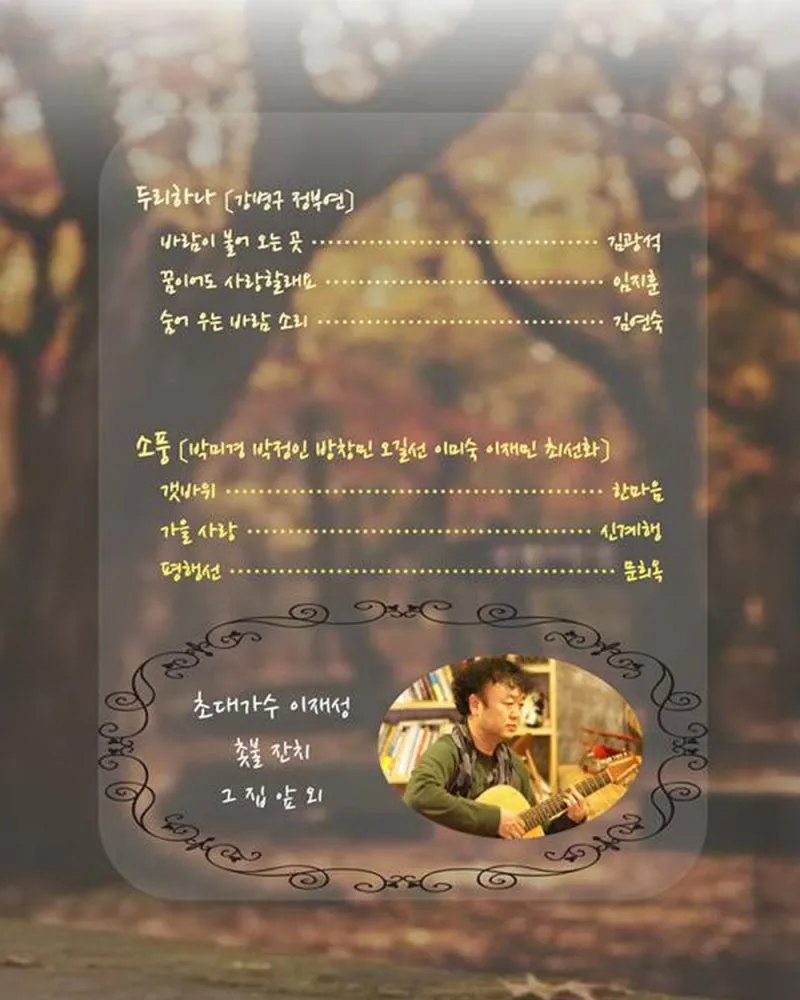 두리하나 [강병구 정부연]
바람이 불어 오는 곳 ································ 김광석
꿈이어도 사랑할래요 ································ 임지훈
숨어 우는 바람 소리 ································ 김연숙
소풍 [박미경 박정인 방창민 오길선 이미숙 이재민 최선화]
갯바위 ································ 한마음
가을 사랑 ································ 신계행
평행선 ································ 문희옥
초대가수 이재성
촛불 잔치
그 집 앞 외